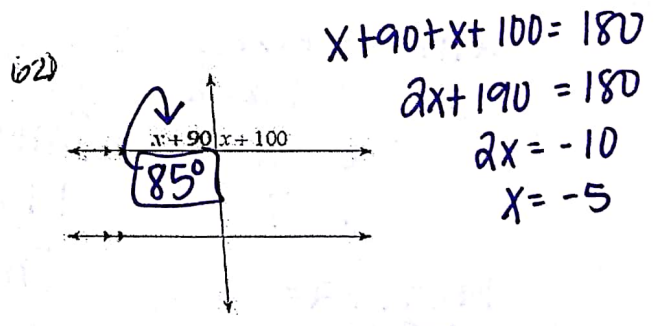 62)
x + 90 x + 100
85°
x+90+x+100 = 180
2x+190 = 180
2x = -10
x = -5